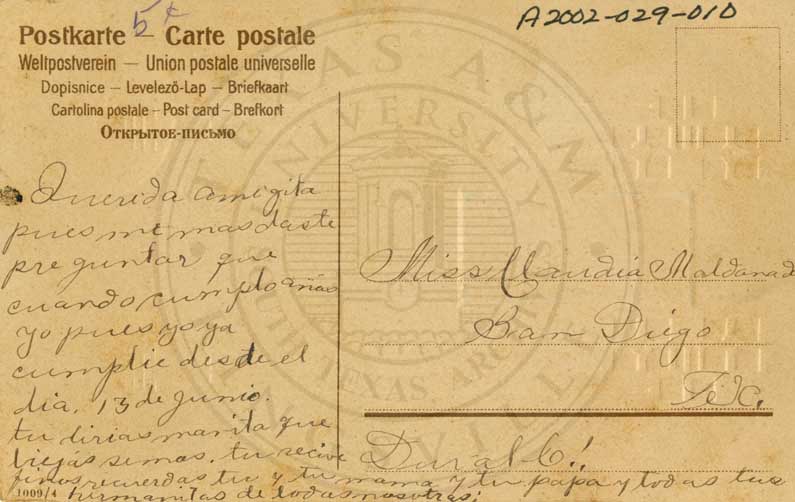 5¢
A2002-029-010
Postkarte — Carte postale
Weltpostverein — Union postale universelle
Dopisnice — Levelező-Lap — Briefkaart
Cartolina postale — Post card — Brefkort
Открытое-письмо
Querida amigita
pues me mas daste
preguntar que
cuando cumplo años
yo pues yo ya
cumplie desde el
dia, 13 de junio.
tu dirias manita que
viejas semos. tu recive
finos recuerdas tu y tu mama y tu papa y todas tus
hermanitas de todas nosotras;
Miss Claudia Maldonado
San Diego
Tex.
Duval Co!.
1009/4
TEXAS A&M UNIVERSITY
UNIVERSITY
SOUTH TEXAS ARCHIVES
KINGSVILLE